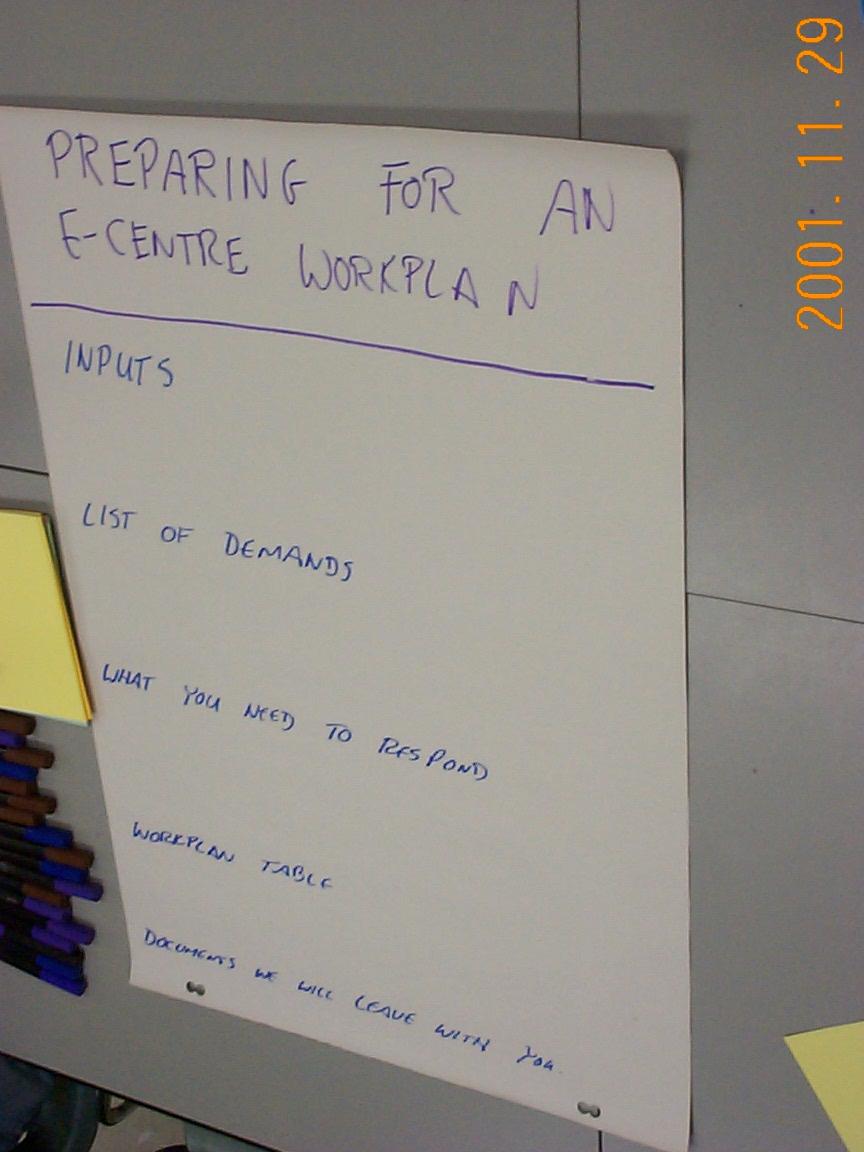 PREPARING FOR AN
E-CENTRE WORKPLAN
INPUTS
LIST OF DEMANDS
WHAT YOU NEED TO RESPOND
WORKPLAN TABLE
DOCUMENTS WE WILL LEAVE WITH YOU.
2001.11.29